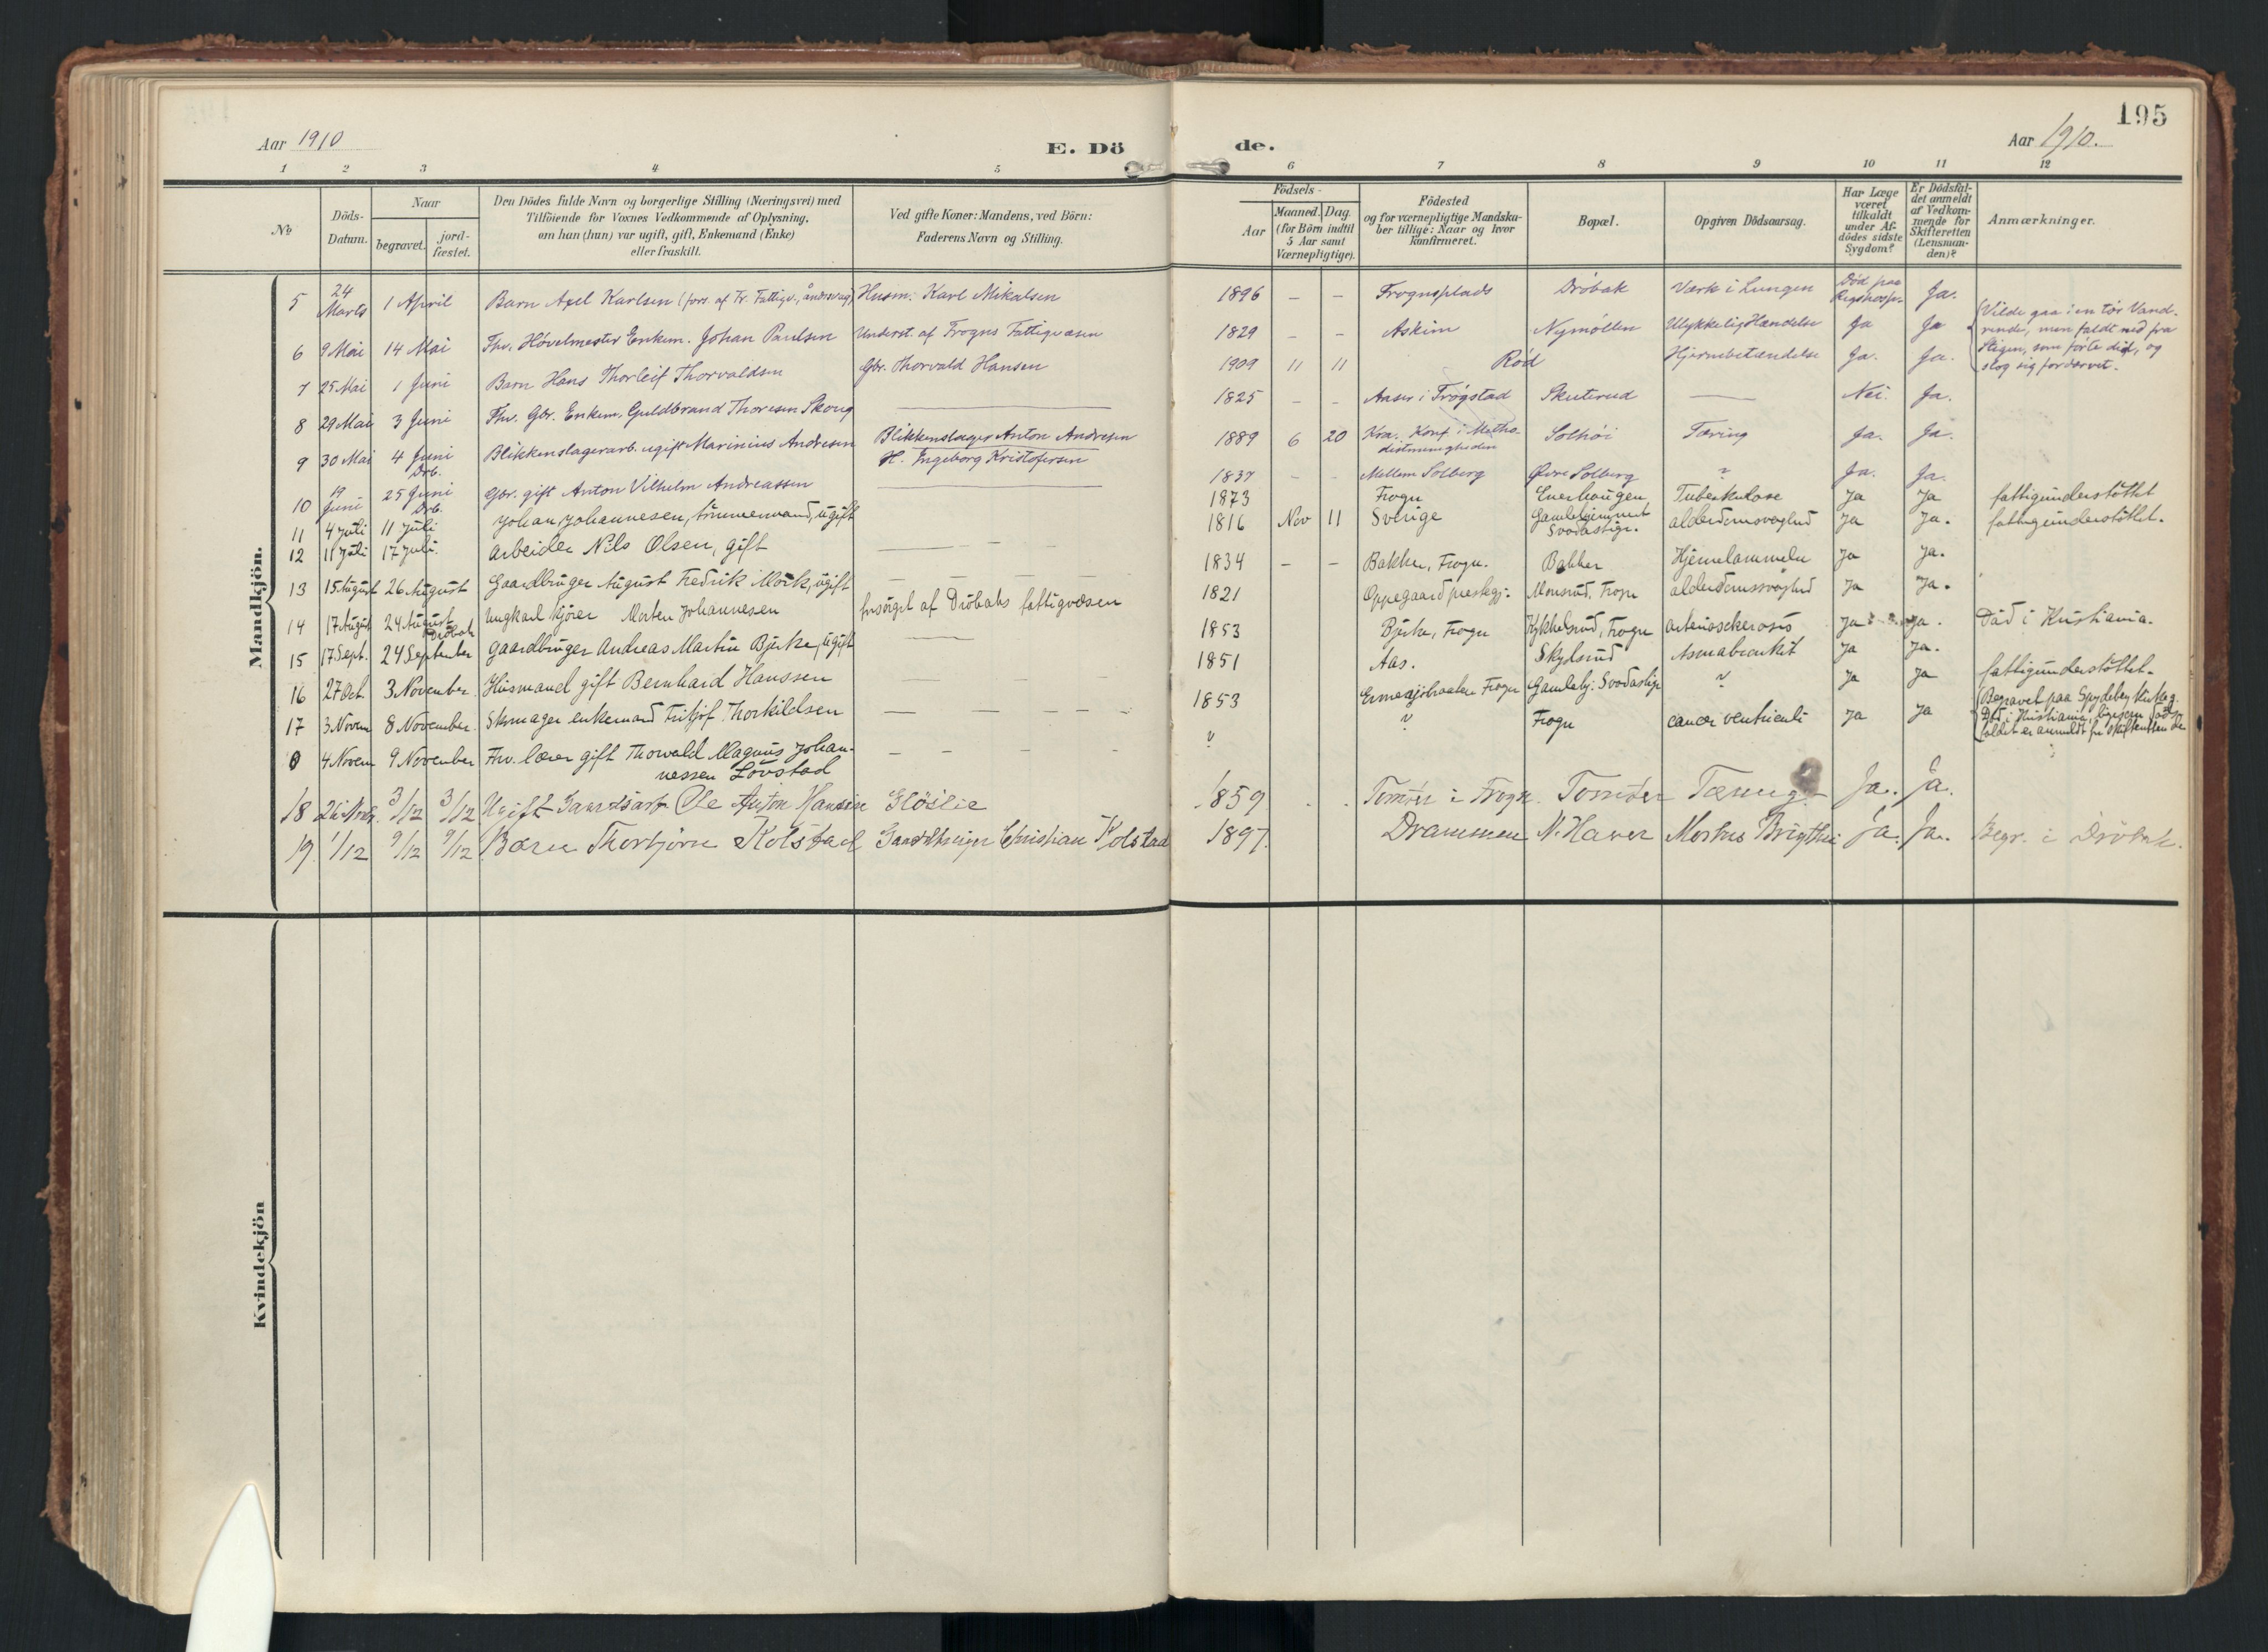 195
Aar 1910
E. Dö
de.
Aar 1910.
1 2 3 4 5 6 7 8 9 10 11 12
No
Döds-
Datum.
Naar
begravet.
jord-
fæstet.
Den Dödes fulde Navn og borgerlige Stilling (Næringsvei) med
Tilföiende for Voxnes Vedkommende af Oplysning,
om han (hun) var ugift, gift, Enkemand (Enke)
eller fraskilt.
Ved gifte Koner: Mandens, ved Börn:
Faderens Navn og Stilling.
Födsels-
Aar
Maaned. Dag.
(for Börn indtil
5 Aar samt
Værnepligtige).
Födested
og for værnepligtige Mandska-
ber tillige: Naar og hvor
konfirmeret.
Bopæl.
Opgiven Dödsaarsag.
Har Læge
været
tilkaldt
under Af-
dödes sidste
Sygdom?
Er Dödsfal-
det anmeldt
af Vedkom-
mende for
Skifteretten
(Lensman-
den)?
Anmærkninger.
Mandkjön.
5 24 Marts 1 April Barn Axel Karlsen (fors. af Fr. Fattigv., åndssvag) Husm. Karl Mikalsen 1896 – – Frognsplads Dröbak Værk i Lungen Död paa Rigshosp. Ja.
6 9 Mai 14 Mai Fhv. Hövelmester Enkem. Johan Paulsen Underst. af Frogns Fattigvæsen 1829 – – Askim Nymöllen Ulykkelig Hændelse Ja Ja
Vilde gaa i en tör Vand-
rende, men faldt ned fra
Stigen, som förte did, og
slog sig fordærvet.
7 25 Mai 1 Juni Barn Hans Thorleif Thorvaldsen Gbr. Thorvald Hansen 1909 11 11 Röd Hjernebetændelse Ja. Ja.
8 29 Mai 3 Juni Fhv. Gbr. Enkem. Guldbrand Thoresen Skoug 1825 – – Aaser i Trögstad Skuterud Nei. Ja.
9 30 Mai 4 Juni Drb. Blikkenslagerarb. ugift Marinius Andresen Blikkenslager Anton Andresen
H. Ingeborg Kristofersen 1889 6 20 Kra. Konf. i Metho-
distmenigheden Solhöi Tæring Ja. Ja.
10 19 Juni 25 Juni Drb. Gbr. gift Anton Vilhelm Andreassen 1837 – – Mellem Solberg Övre Solberg ? Ja. Ja.
11 4 juli 11 juli Johan Johannesen, tömmermand, ugift 1873 Frogn Enerhaugen Tuberkulose Ja Ja fattigunderstöttet
12 11 juli 17 juli. Arbeider Nils Olsen, gift 1816 Nov 11 Sverige Gamlehjemmet alderdomssvaghed Ja Ja. fattigunderstöttet.
13 15 August 26 August Gaardbruger August Fredrik Mork, ugift 1834 – – Bakker, Frogn. Bakker Hjernelammelse Ja Ja.
14 17 August 24 August Dröbak Ungkarl kjörer Morten Johannesen forsörget af Dröbaks fattigvæsen 1821 Oppegaard prestegj. Monsrud, Frogn alderdomssvaghed Ja Ja.
15 17 Sept. 24 September Gaardbruger Andreas Martin Bjerke, ugift 1853 Bjerke, Frogn Kykkelsrud, Frogn arteriosclerosis Ja Ja. Död i Kristiania.
16 27 Oct 3 November. Husmand gift Bernhard Hanssen 1851 Aas. Skylsrud Asmabronkit Ja Ja.
17 3 Novem 8 November. Skomager enkemand Fritjof Thorkildsen 1853 Frogn Gamlehj: ? Ja Ja fattigunderstöttet.
0 4 Novem 9 November Fhv. lærer gift Thorvald Magnus Johan-
nessen Lövstad ? ? Frogn cancer ventriculi Ja Ja
Begravet paa Spydeberg Kirkeg.
Död i Kristiania, ligesom döds-
faldet er anmeldt for skifteretten der
18 26 Nov. 3/12 3/12 Ugift Gaardsarb. Ole Anton Hansen Glöslie 1859 Tomter i Frogn. Tomter Tæring. Ja. Ja.
19. 1/12 9/12 9/12 Barn Thorbjörn Kolstad Gaardbruger Christian Kolstad 1897. Drammen N. Haver Morbus Brigthii Ja. Ja. Begr. i Dröbak.
Kvindekjön